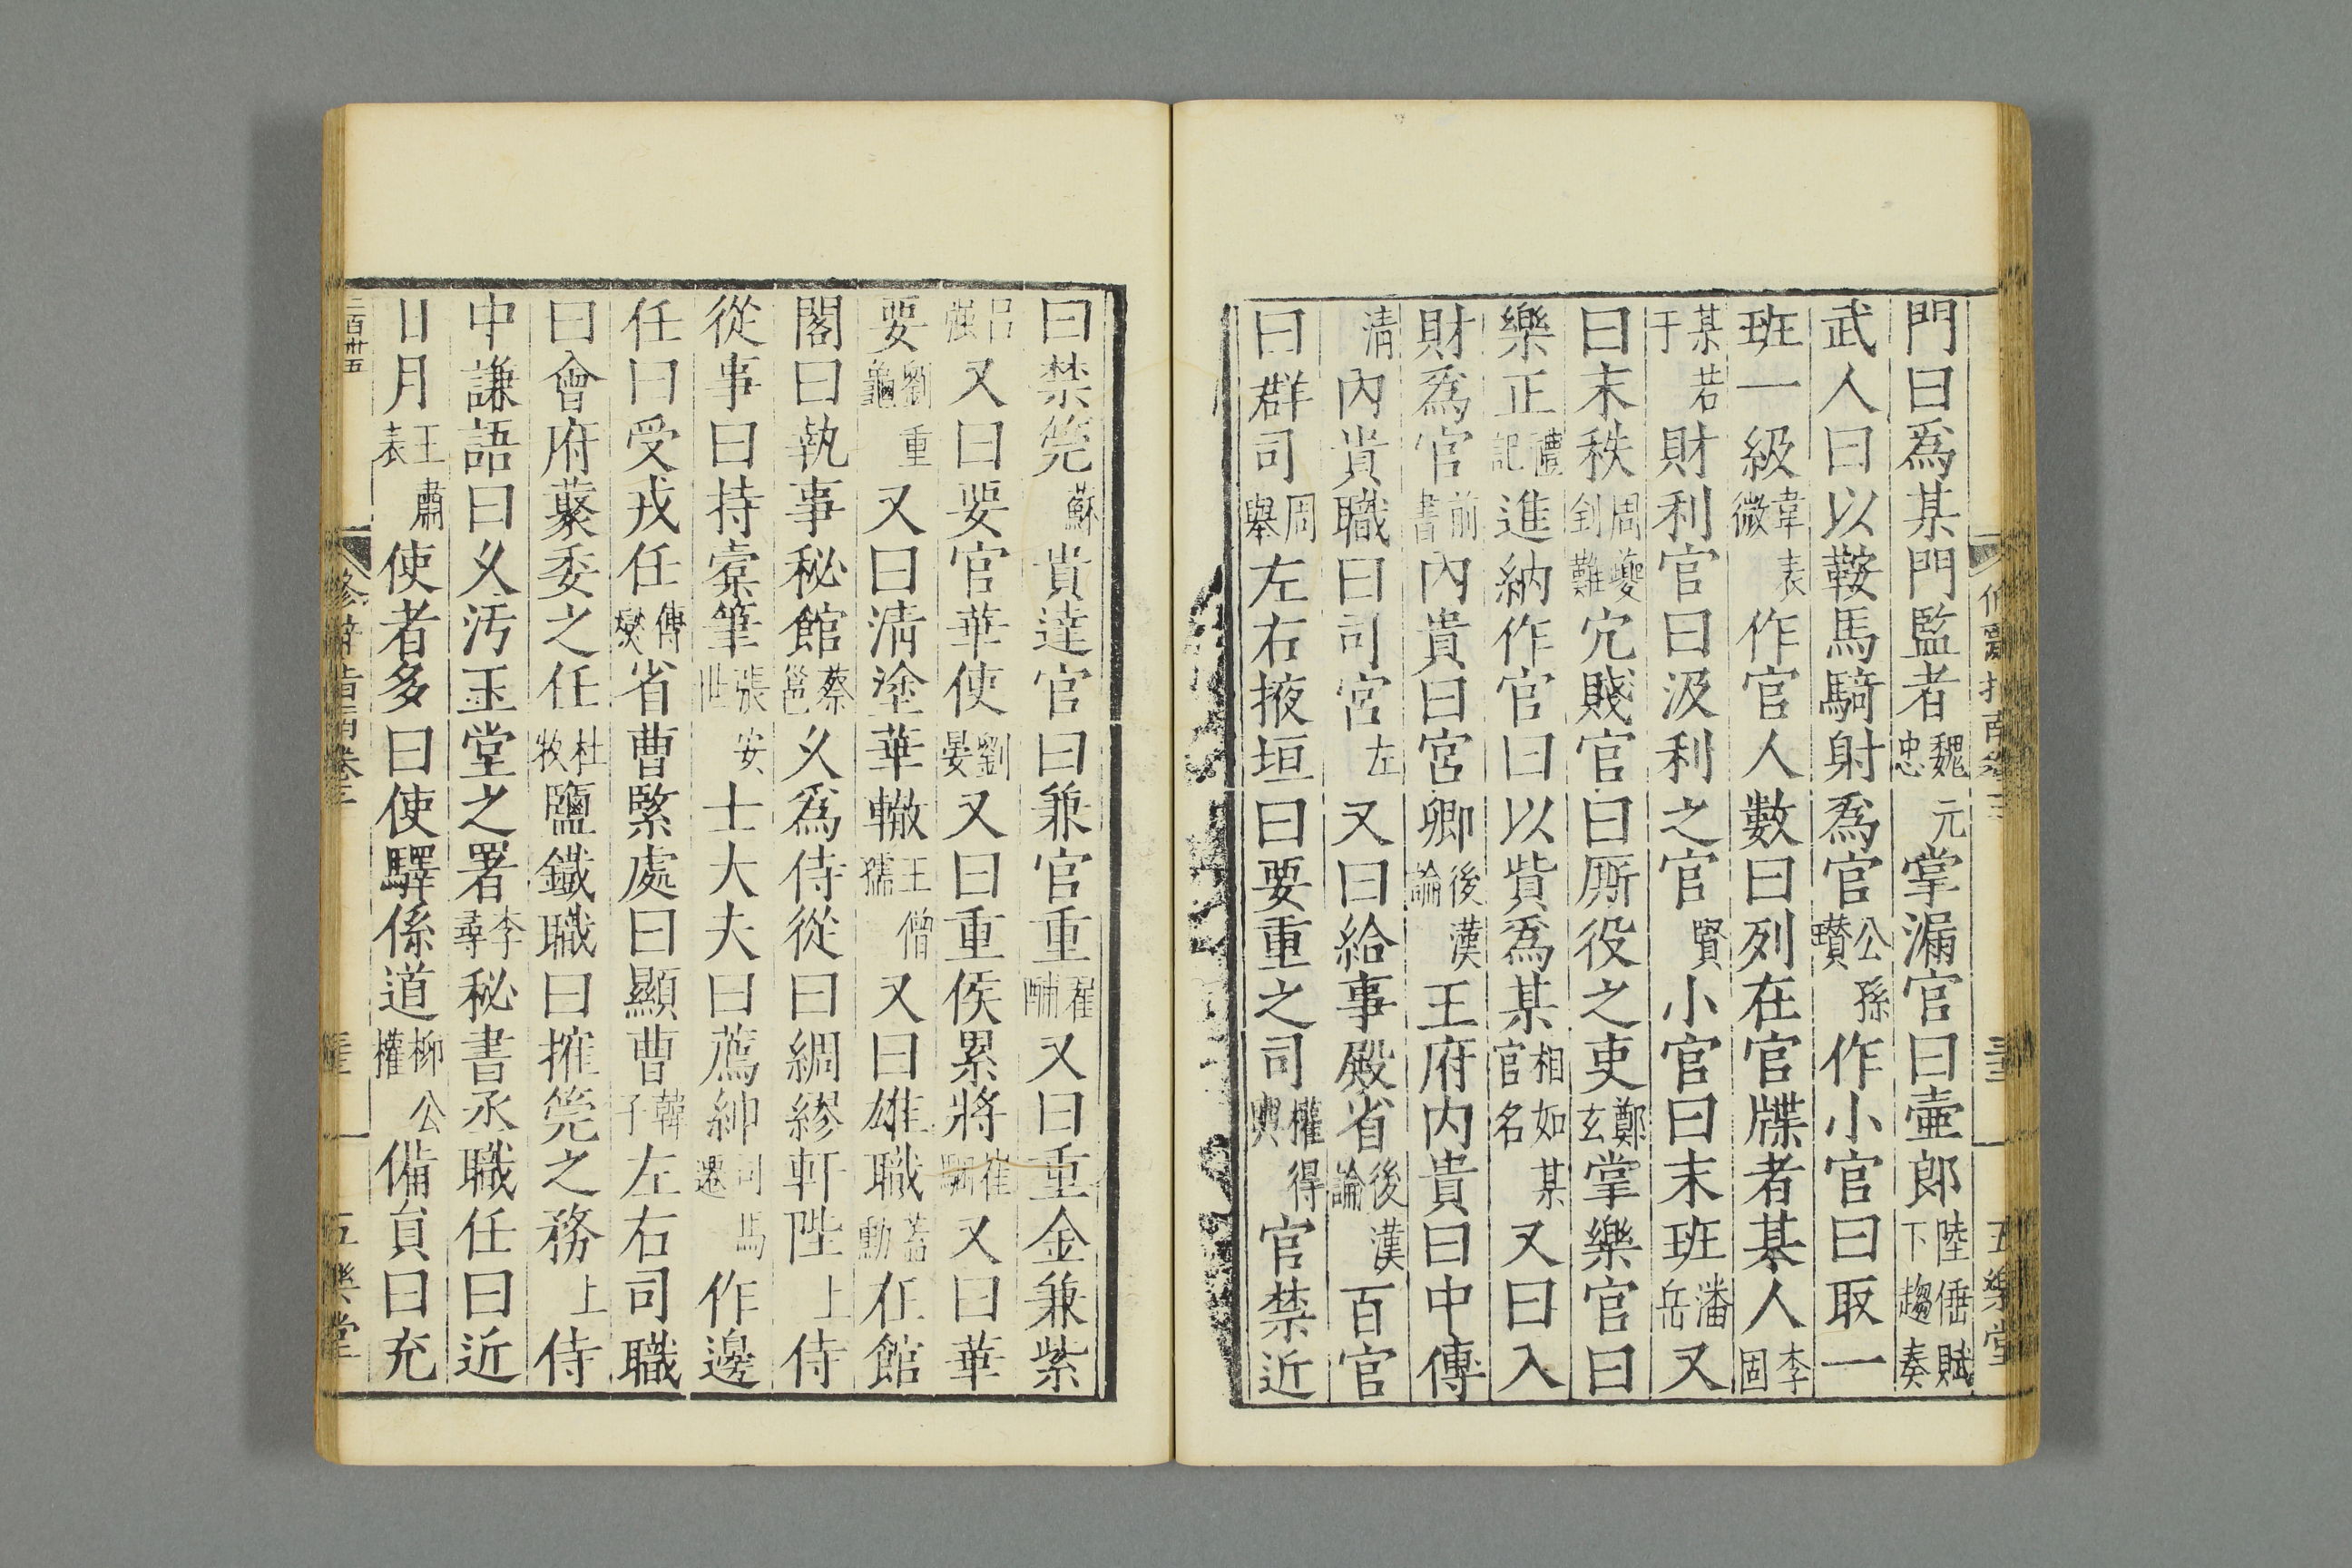 門曰爲某門監者魏元忠掌漏官曰壷郎陸倕賦下趨奏
武人曰以鞍馬騎射爲官公孫瓚作小官曰取一
班一級韋表微作官人數曰列在官牒者某人李固
某若于財利官曰汲利之官賢小官曰末班潘岳又
曰末秩周夔到難宂賤官曰厮役之吏鄭玄掌樂官曰
樂正禮記進納作官曰以貲爲某官相如某名又曰入
財爲官前書內貴曰宮卿後漢論王府内貴曰中傳
清內貴職曰司宮左又曰給事殿省後漢論百官
曰群司周舉左右掖垣曰要重之司權得輿官禁近
曰禁筦蘇貴達官曰兼官重崔酺又曰重金兼紫
呂彊又曰要官華使劉晏又曰重侯累將崔駰又曰華
要劉重龜又曰清塗華轍王僧孺又曰雄職蕭勳在館
閣曰執事秘館蔡邕乂爲侍從曰綢繆軒陛上侍
從事曰持槖筆張安世士大夫曰薦紳司馬遷作邊
任曰受戎任傅燮省曹緊處曰顯曹韓子左右司職
曰會府藂委之任杜牧鹽鐵職曰搉筦之務上侍
中謙語曰乂汚玉堂之署李尋秘書丞職任曰近
日月王肅表使者多曰使驛係道柳公權備員曰充
二百卅五
修辭指南卷三
五樂堂